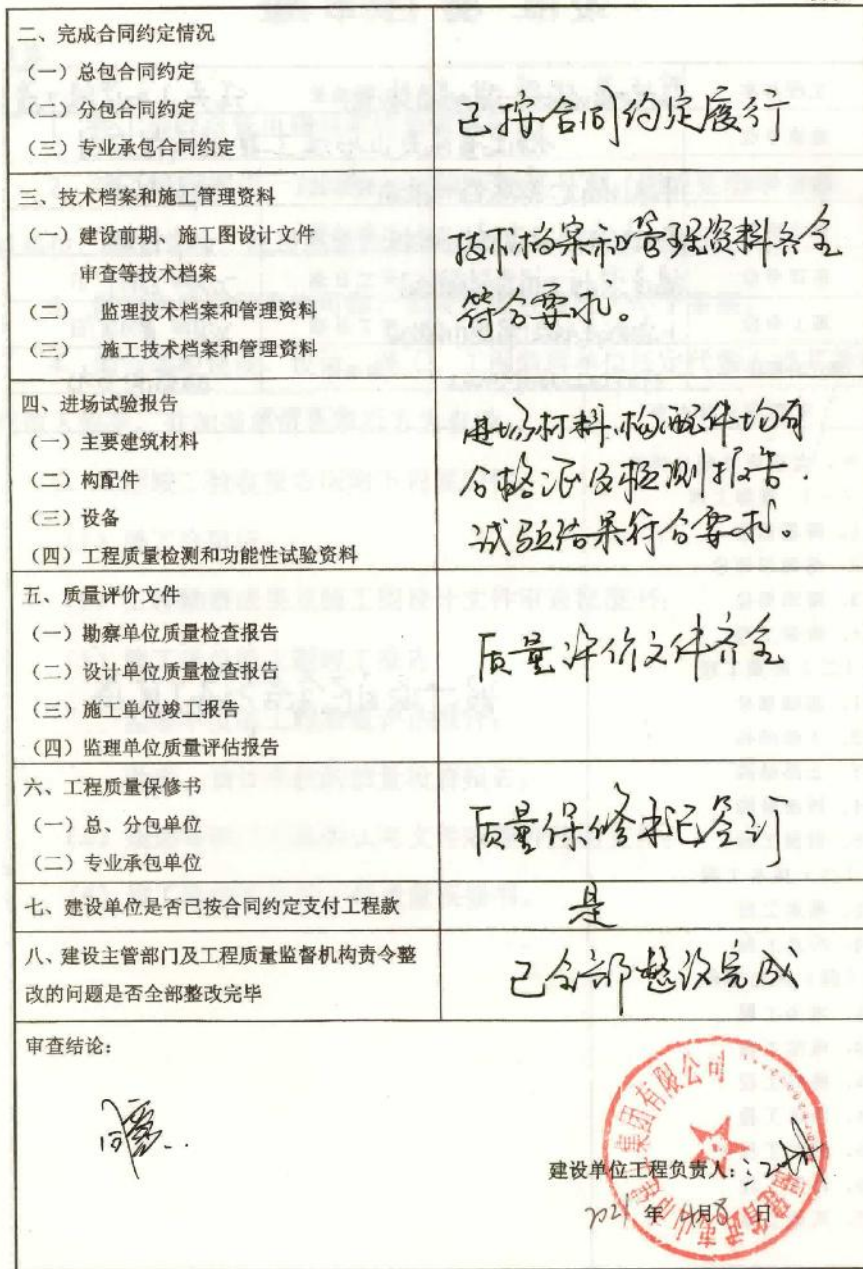 二、完成合同约定情况
（一）总包合同约定
（二）分包合同约定
（三）专业承包合同约定
已按合同约定履行
三、技术档案和施工管理资料
（一）建设前期、施工图设计文件
审查等技术档案
（二） 监理技术档案和管理资料
（三） 施工技术档案和管理资料
技术档案和管理资料齐全
符合要求。
四、进场试验报告
（一）主要建筑材料
（二）构配件
（三）设备
（四）工程质量检测和功能性试验资料
进场材料、构配件均有
合格证及检测报告.
试验结果符合要求。
五、质量评价文件
（一）勘察单位质量检查报告
（二）设计单位质量检查报告
（三）施工单位竣工报告
（四）监理单位质量评估报告
质量评价文件齐全
六、工程质量保修书
（一）总、分包单位
（二）专业承包单位
质量保修书已签订
七、建设单位是否已按合同约定支付工程款
是
八、建设主管部门及工程质量监督机构责令整
改的问题是否全部整改完毕
已全部整改完成
审查结论：
同意
建设单位工程负责人：
2021 年 4月8 日